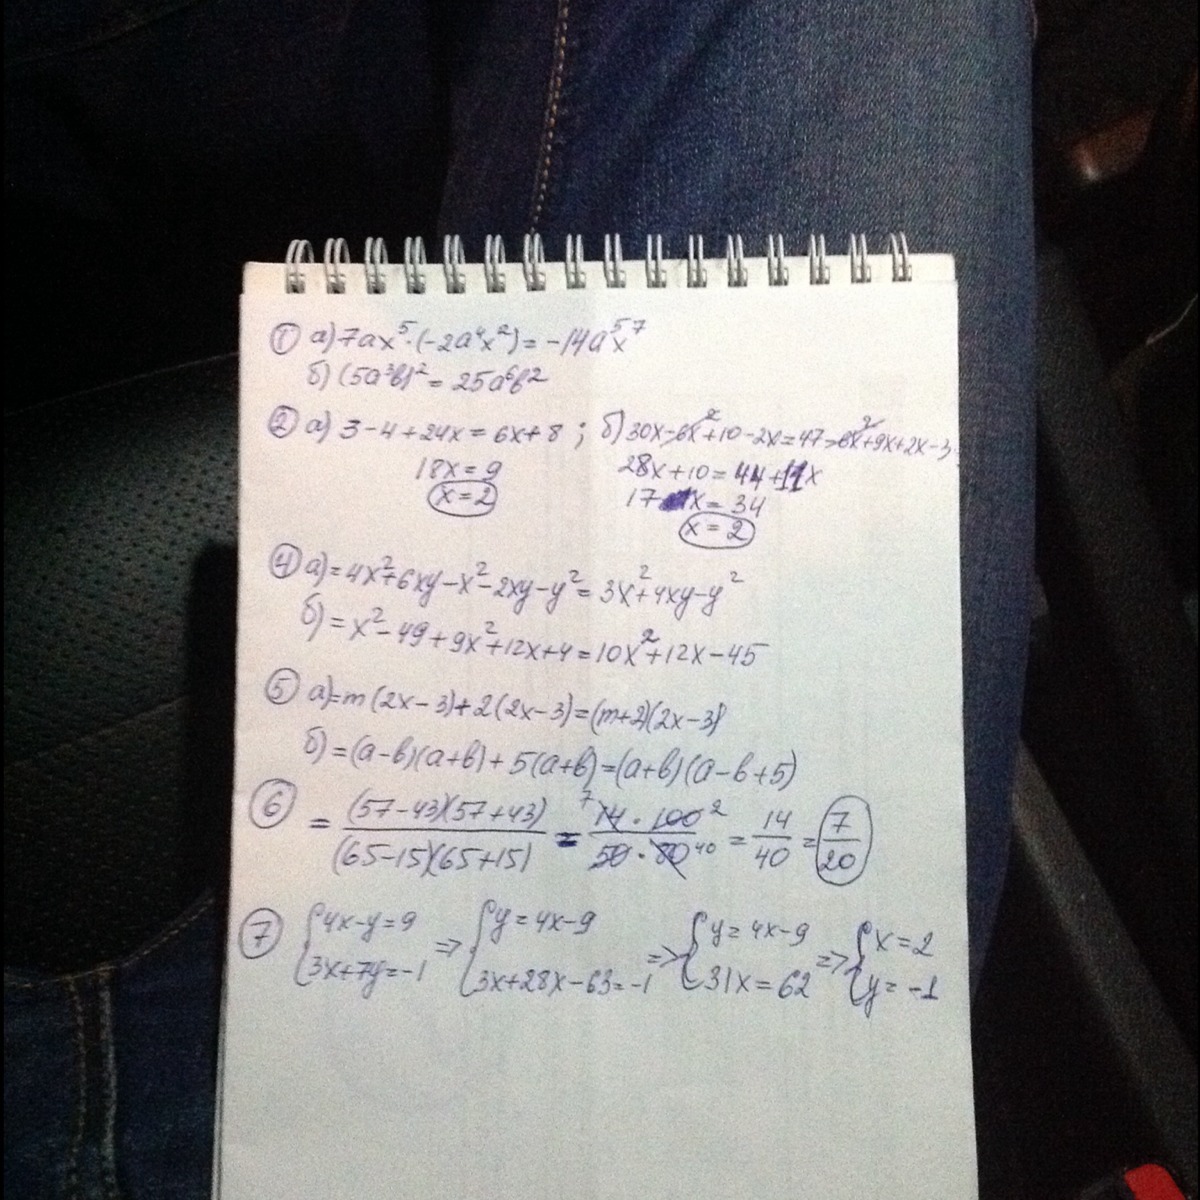 ① а) 7ax⁵·(-2a⁴x²) = -14a⁵x⁷
б) (5a³b)² = 25a⁶b²
② а) 3-4+24x=6x+8; б) 30x-6x²+10-2x=47-6x²+9x+2x-3
18x=9 28x+10=44+11x
x=2 17x=34
x=2
④ а) =4x²+6xy-x²-2xy-y²=3x²+4xy-y²
б) =x²-49+9x²+12x+4=10x²+12x-45
⑤ а) =m(2x-3)+2(2x-3)=(m+2)(2x-3)
б) =(a-b)(a+b)+5(a+b)=(a+b)(a-b+5)
⑥ = (57-43)(57+43) / (65-15)(65+15) = 7 14·100 2 / 50·80 40 = 14/40 = 7/20
⑦ {4x-y=9 => {y=4x-9 => {y=4x-9 => {x=2
3x+7y=-1 3x+28x-63=-1 31x=62 y=-1